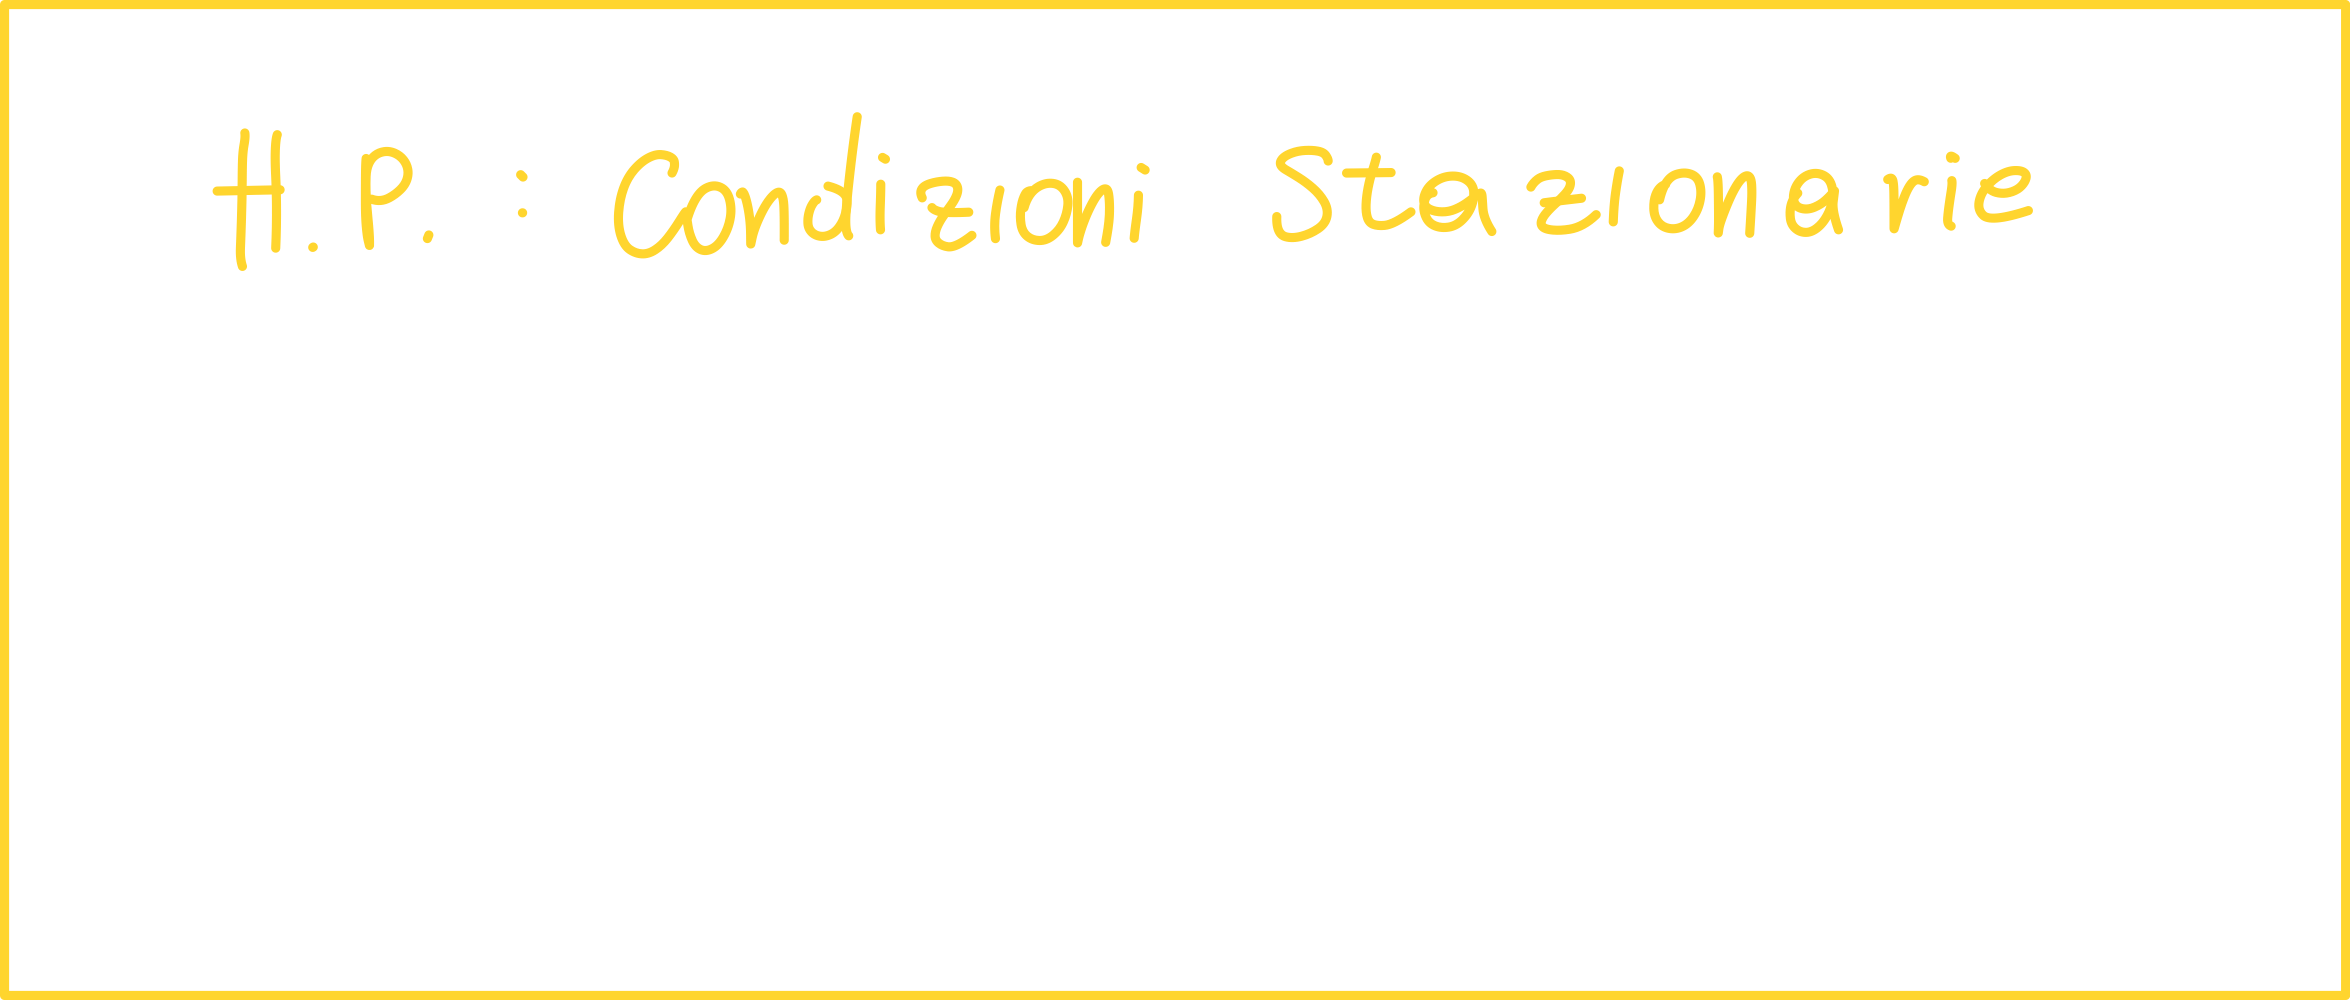 H.P.: Condizioni Stazionarie